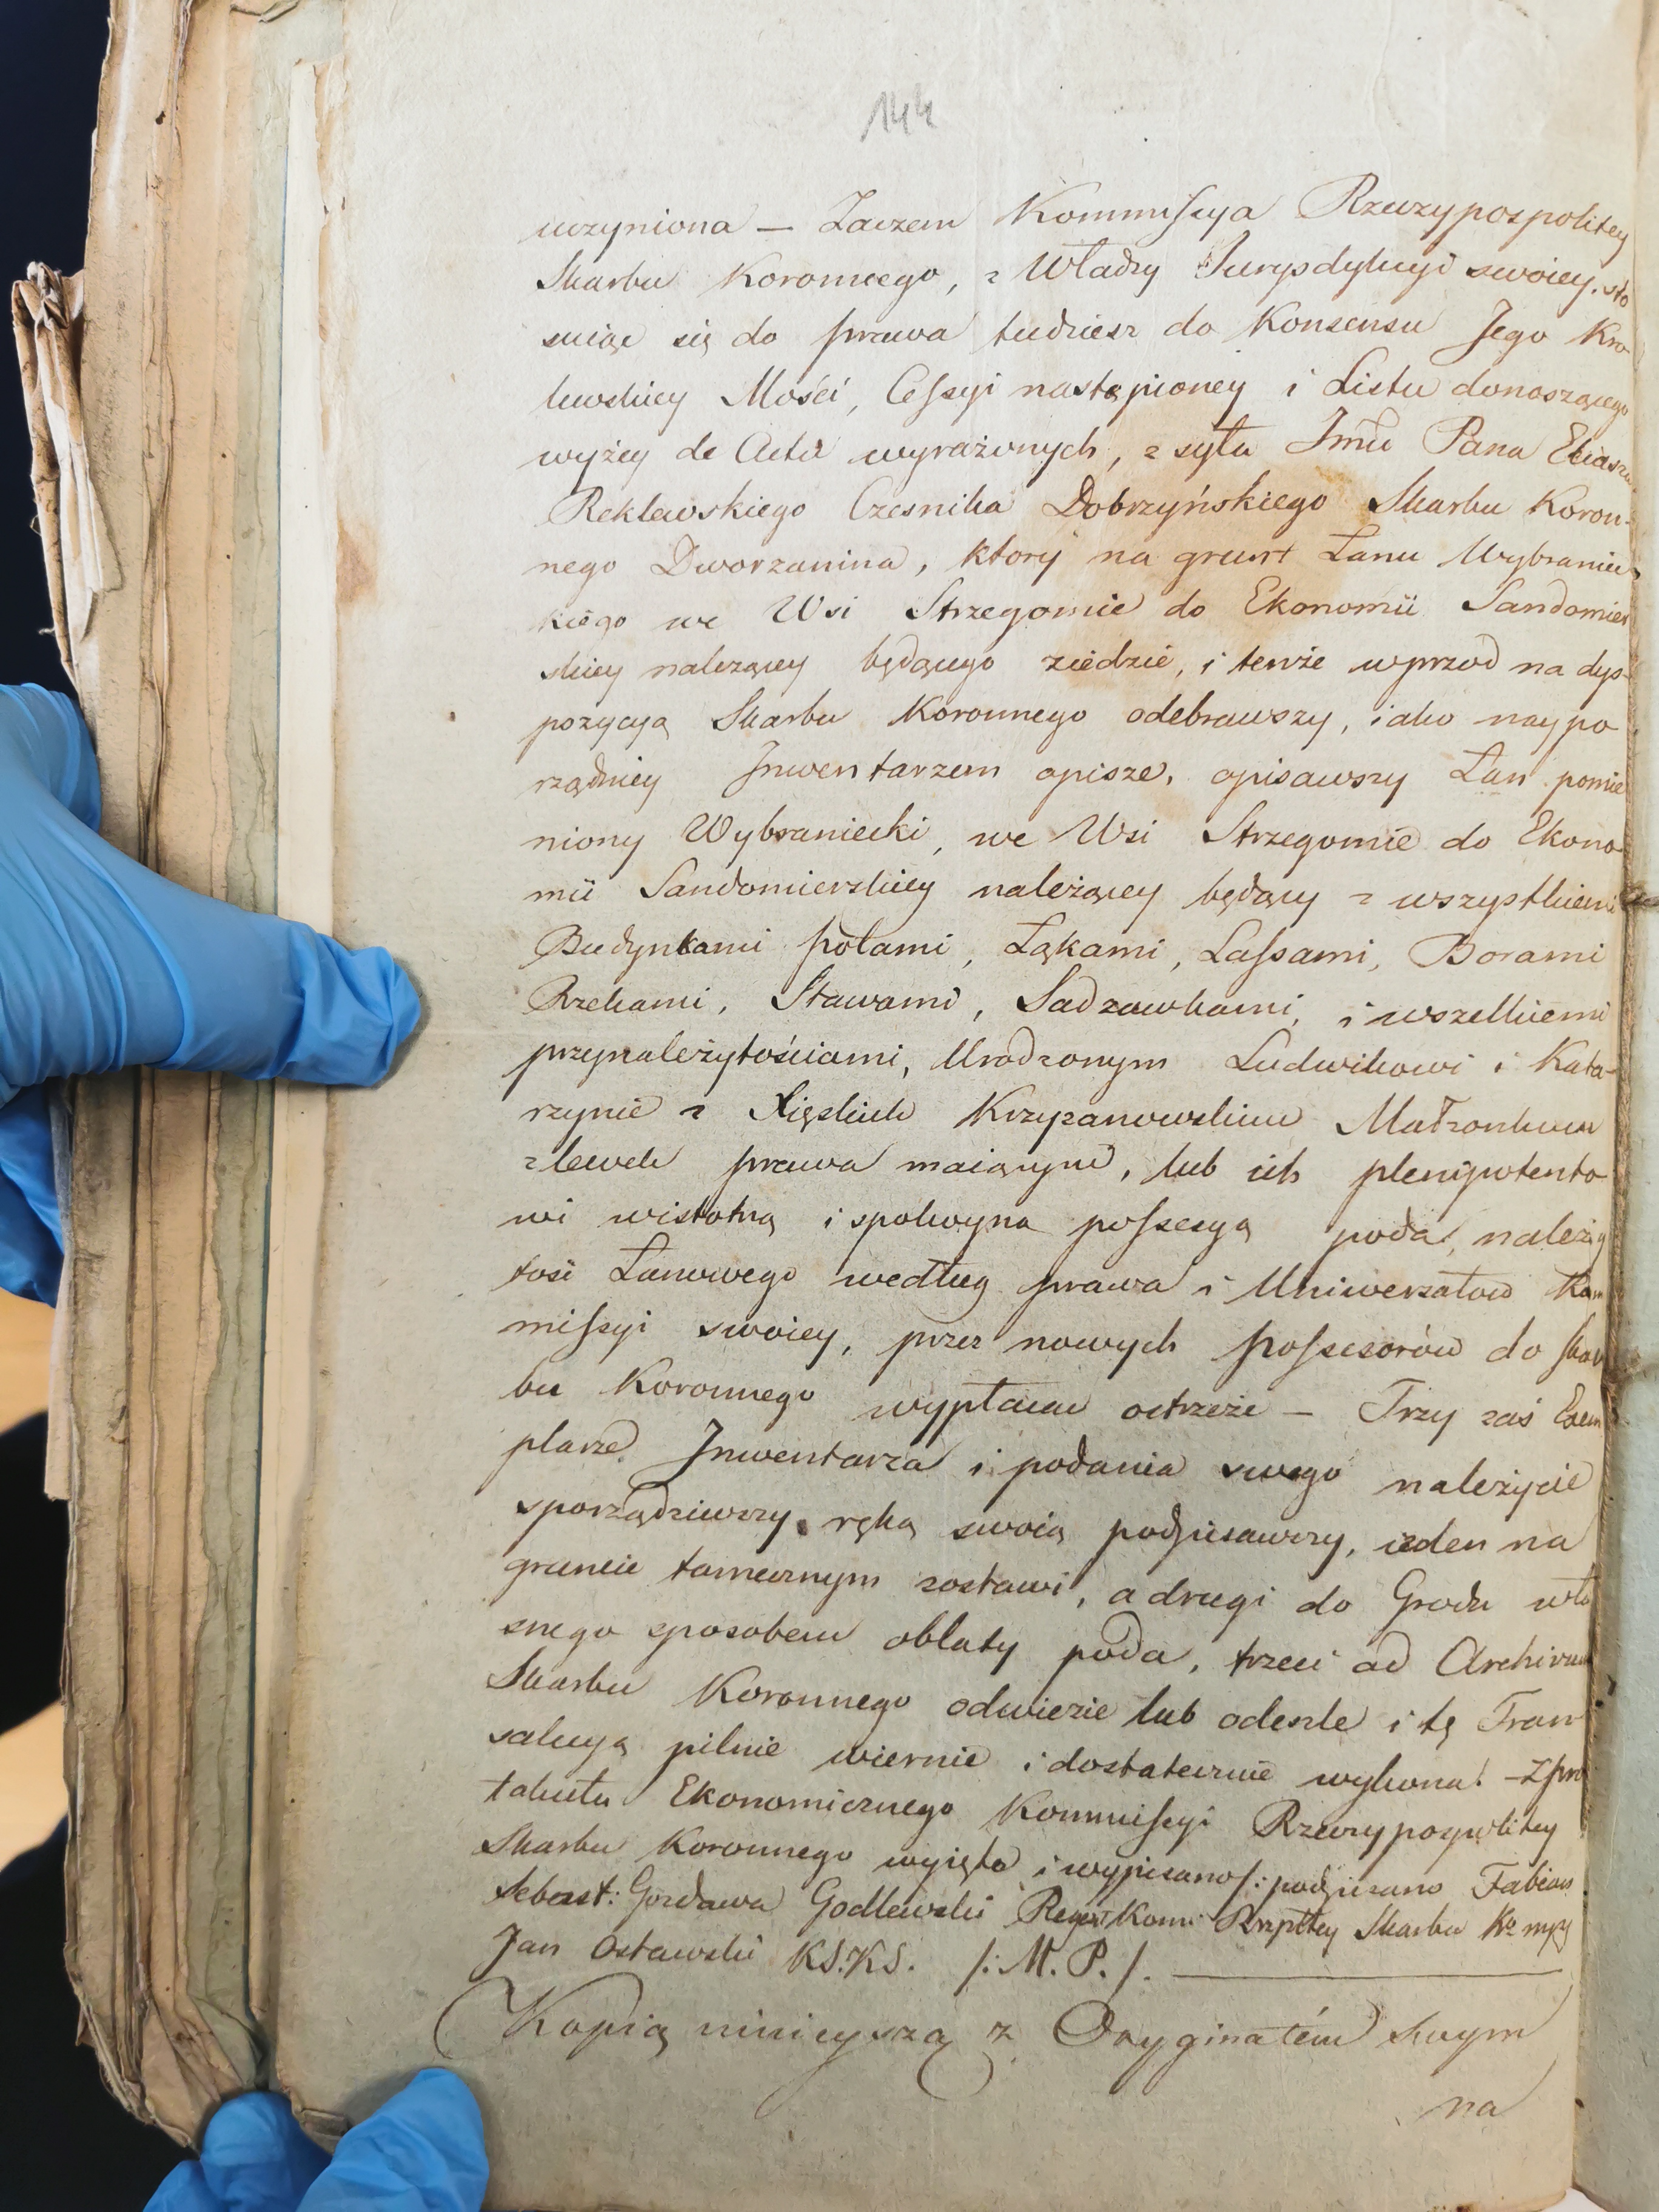 144
uczyniona — Zaczem Kommissya Rzeczypospolitey
Skarbu Koronnego, z Władzy Jurysdykcyi swoiey, sto
suiąc się do prawa tudziesz do Konsensu Jego Kro
lewskiey Mości, Cessyi nastąpioney i Listu donoszącego
wyżey de Acta wyrażonych, zsyła Jmći Pana Eliasza
Reklewskiego Czesnika Dobrzyńskiego Skarbu Koron-
nego Dworzanina, ktory na grunt Łanu Wybraniec
kiego we Wsi Strzegomie do Ekonomii Sandomier
skiey należącey będącego ziedzie, i tenże wprzod na dys-
pozycyą Skarbu Koronnego odebrawszy, iako naypo
rządniey Jnwentarzem opisze, opisawszy Łan pomie
niony Wybraniecki, we Wsi Strzegomie do Ekono-
mii Sandomierskiey należącey będący z wszystkiemi
Budynkami polami, Łąkami, Lassami, Borami
Rzekami, Stawami, Sadzawkami, i wszelkiemi
przynależytościami, Urodzonym Ludwikowi i Kata-
rzynie z Krzyzanowskim Małżonkom
zlewek prawa maiącym, lub ich plenipotento
wi wistotną i spokoyną possesyą poda, należy
tość Łanowego według prawa i Uniwersałow Kom
missyi swoiey, przez nowych possesorów do skar
bu Koronnego wypłacac ostrzeże — Trzy zaś Exem
plarze Jnwentarza i podania swego należycie
sporządziwszy, ręką swoią podpisawszy, ieden na
gruncie tamecznym zostawi, a drugi do Grodu wła
snego sposobem oblaty poda, trzeci ad Archivum
Skarbu Koronnego odwiezie lub odeszle i tę Tran
sakcyą pilnie wiernie i dostatecznie wykona. — Z pro
tokułu Ekonomicznego Kommissyi Rzeczypospolitey
Skarbu Koronnego wyięto i wypisano /: podpisano Fabian
Sebast: Gozdawa Godlewski Regent Komi Rzpltey Skarbu Ko mpp
Jan Ostawski KS.KS. /: M. P. /.
Kopią ninieyszą z Oryginałem swym
na